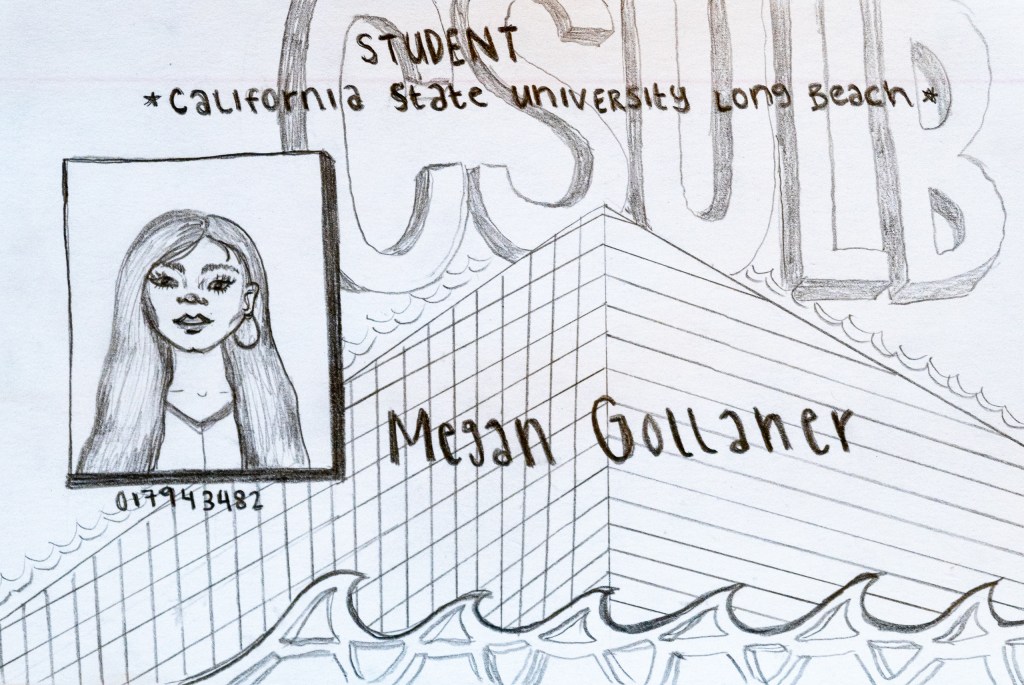 CSULB
STUDENT
*California State University Long Beach*
Megan Gollaner
017943482